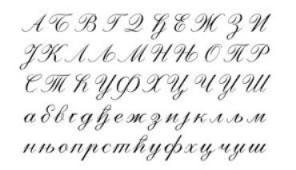 А Б В Г Д Ђ Е Ж З И
Ј К Л Љ М Н Њ О П Р
С Т Ћ У Ф Х Ц Ч Џ Ш
а б в г д ђ е ж з и ј к л љ м
н њ о п р с т ћ у ф х ц ч џ ш